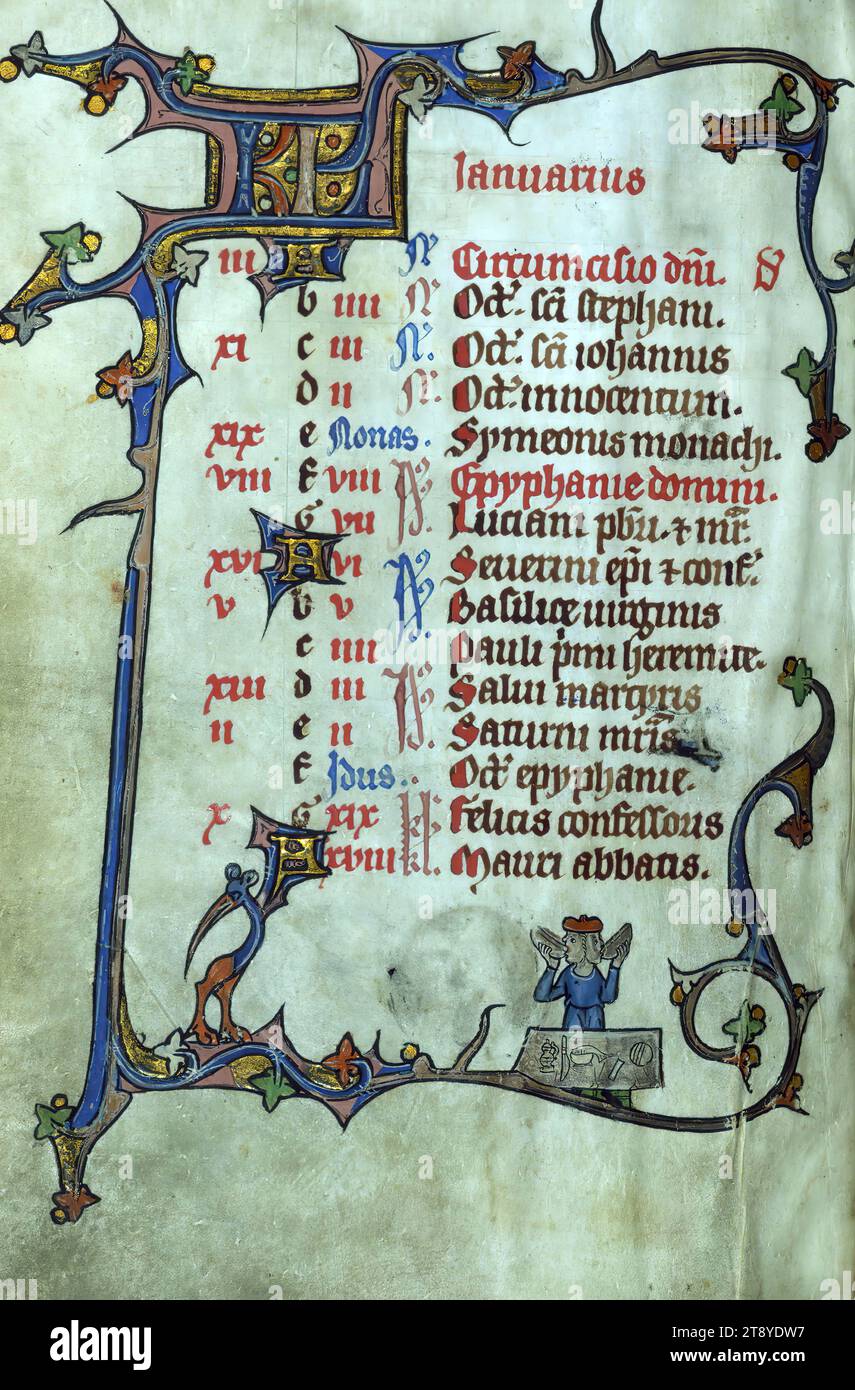 KL Ianuarius
iii A N Circumcisio dni. D
b iiii N Oct. sci stephani.
xi c iii N. Oct. sci iohannis
d ii N. Oct. innocentum.
xix e Nonas. Symeonis monachi.
viii f viii Id Epyphanie domini.
G vii Id Luciani pbri. & mr.
xvi A vi Id Seuerini epi & conf.
v b v Id. Basilice uirginis
c iiii Pauli pimi heremite.
xiii d iii Id Salui martyris
ii e ii Id. Saturni mris
f Idus. Oct epyphanie.
x G xix kl Felicis confessoris
A xviii kl. Mauri abbatis.
alamy
Image ID: 2T8YDW7
www.alamy.com